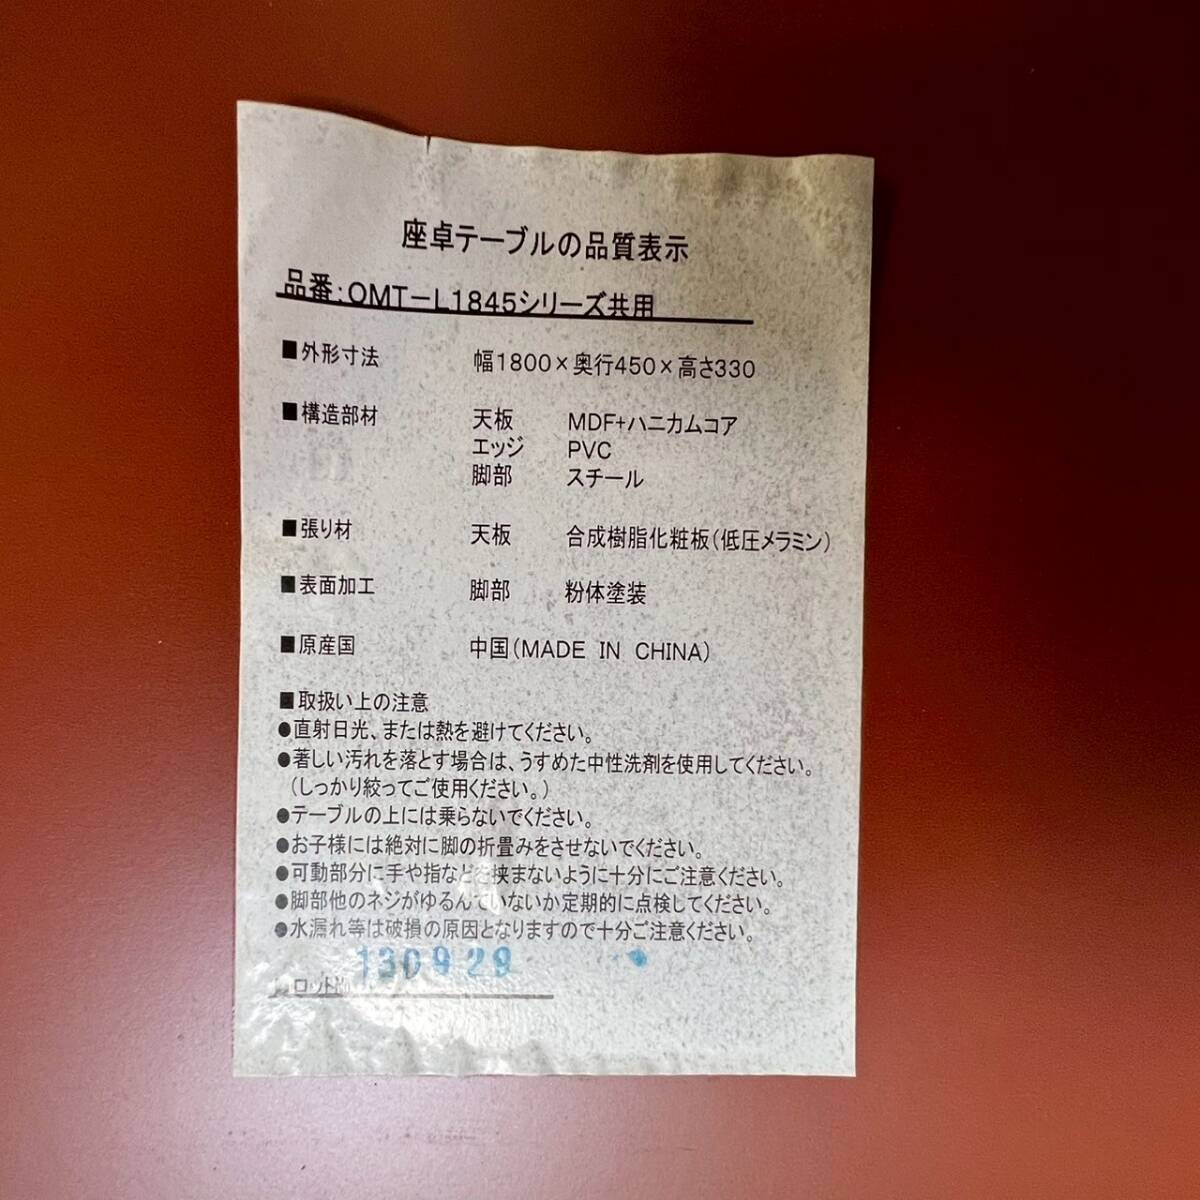 座卓テーブルの品質表示
品番:OMT－L1845シリーズ共用
■外形寸法 幅1800×奥行450×高さ330
■構造部材 天板 MDF+ハニカムコア
エッジ PVC
脚部 スチール
■張り材 天板 合成樹脂化粧板(低圧メラミン)
■表面加工 脚部 粉体塗装
■原産国 中国(MADE IN CHINA)
■取扱い上の注意
●直射日光、または熱を避けてください。
●著しい汚れを落とす場合は、うすめた中性洗剤を使用してください。
(しっかり絞ってご使用ください。)
●テーブルの上には乗らないでください。
●お子様には絶対に脚の折畳みをさせないでください。
●可動部分に手や指などを挟まないように十分にご注意ください。
●脚部他のネジがゆるんでいないか定期的に点検してください。
●水漏れ等は破損の原因となりますので十分ご注意ください。
ロット 130929